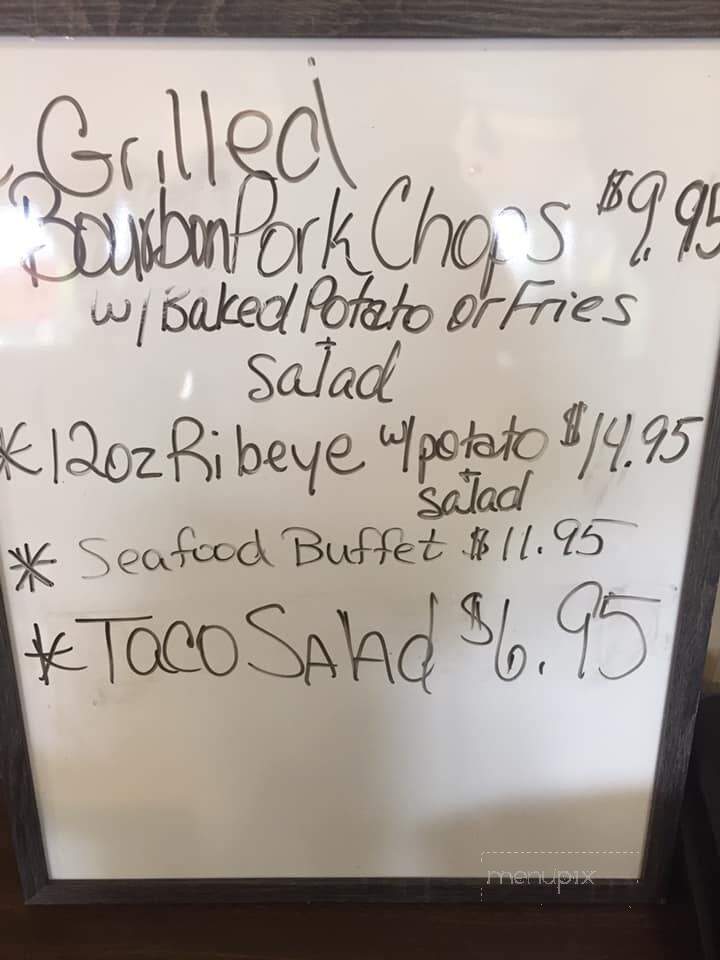 Grilled
Bourbon Pork Chops $9.95
w/Baked Potato or Fries
+
Salad
*12oz Ribeye w/potato $14.95
+
salad
* Seafood Buffet $11.95
*Taco Salad $6.95
menupix